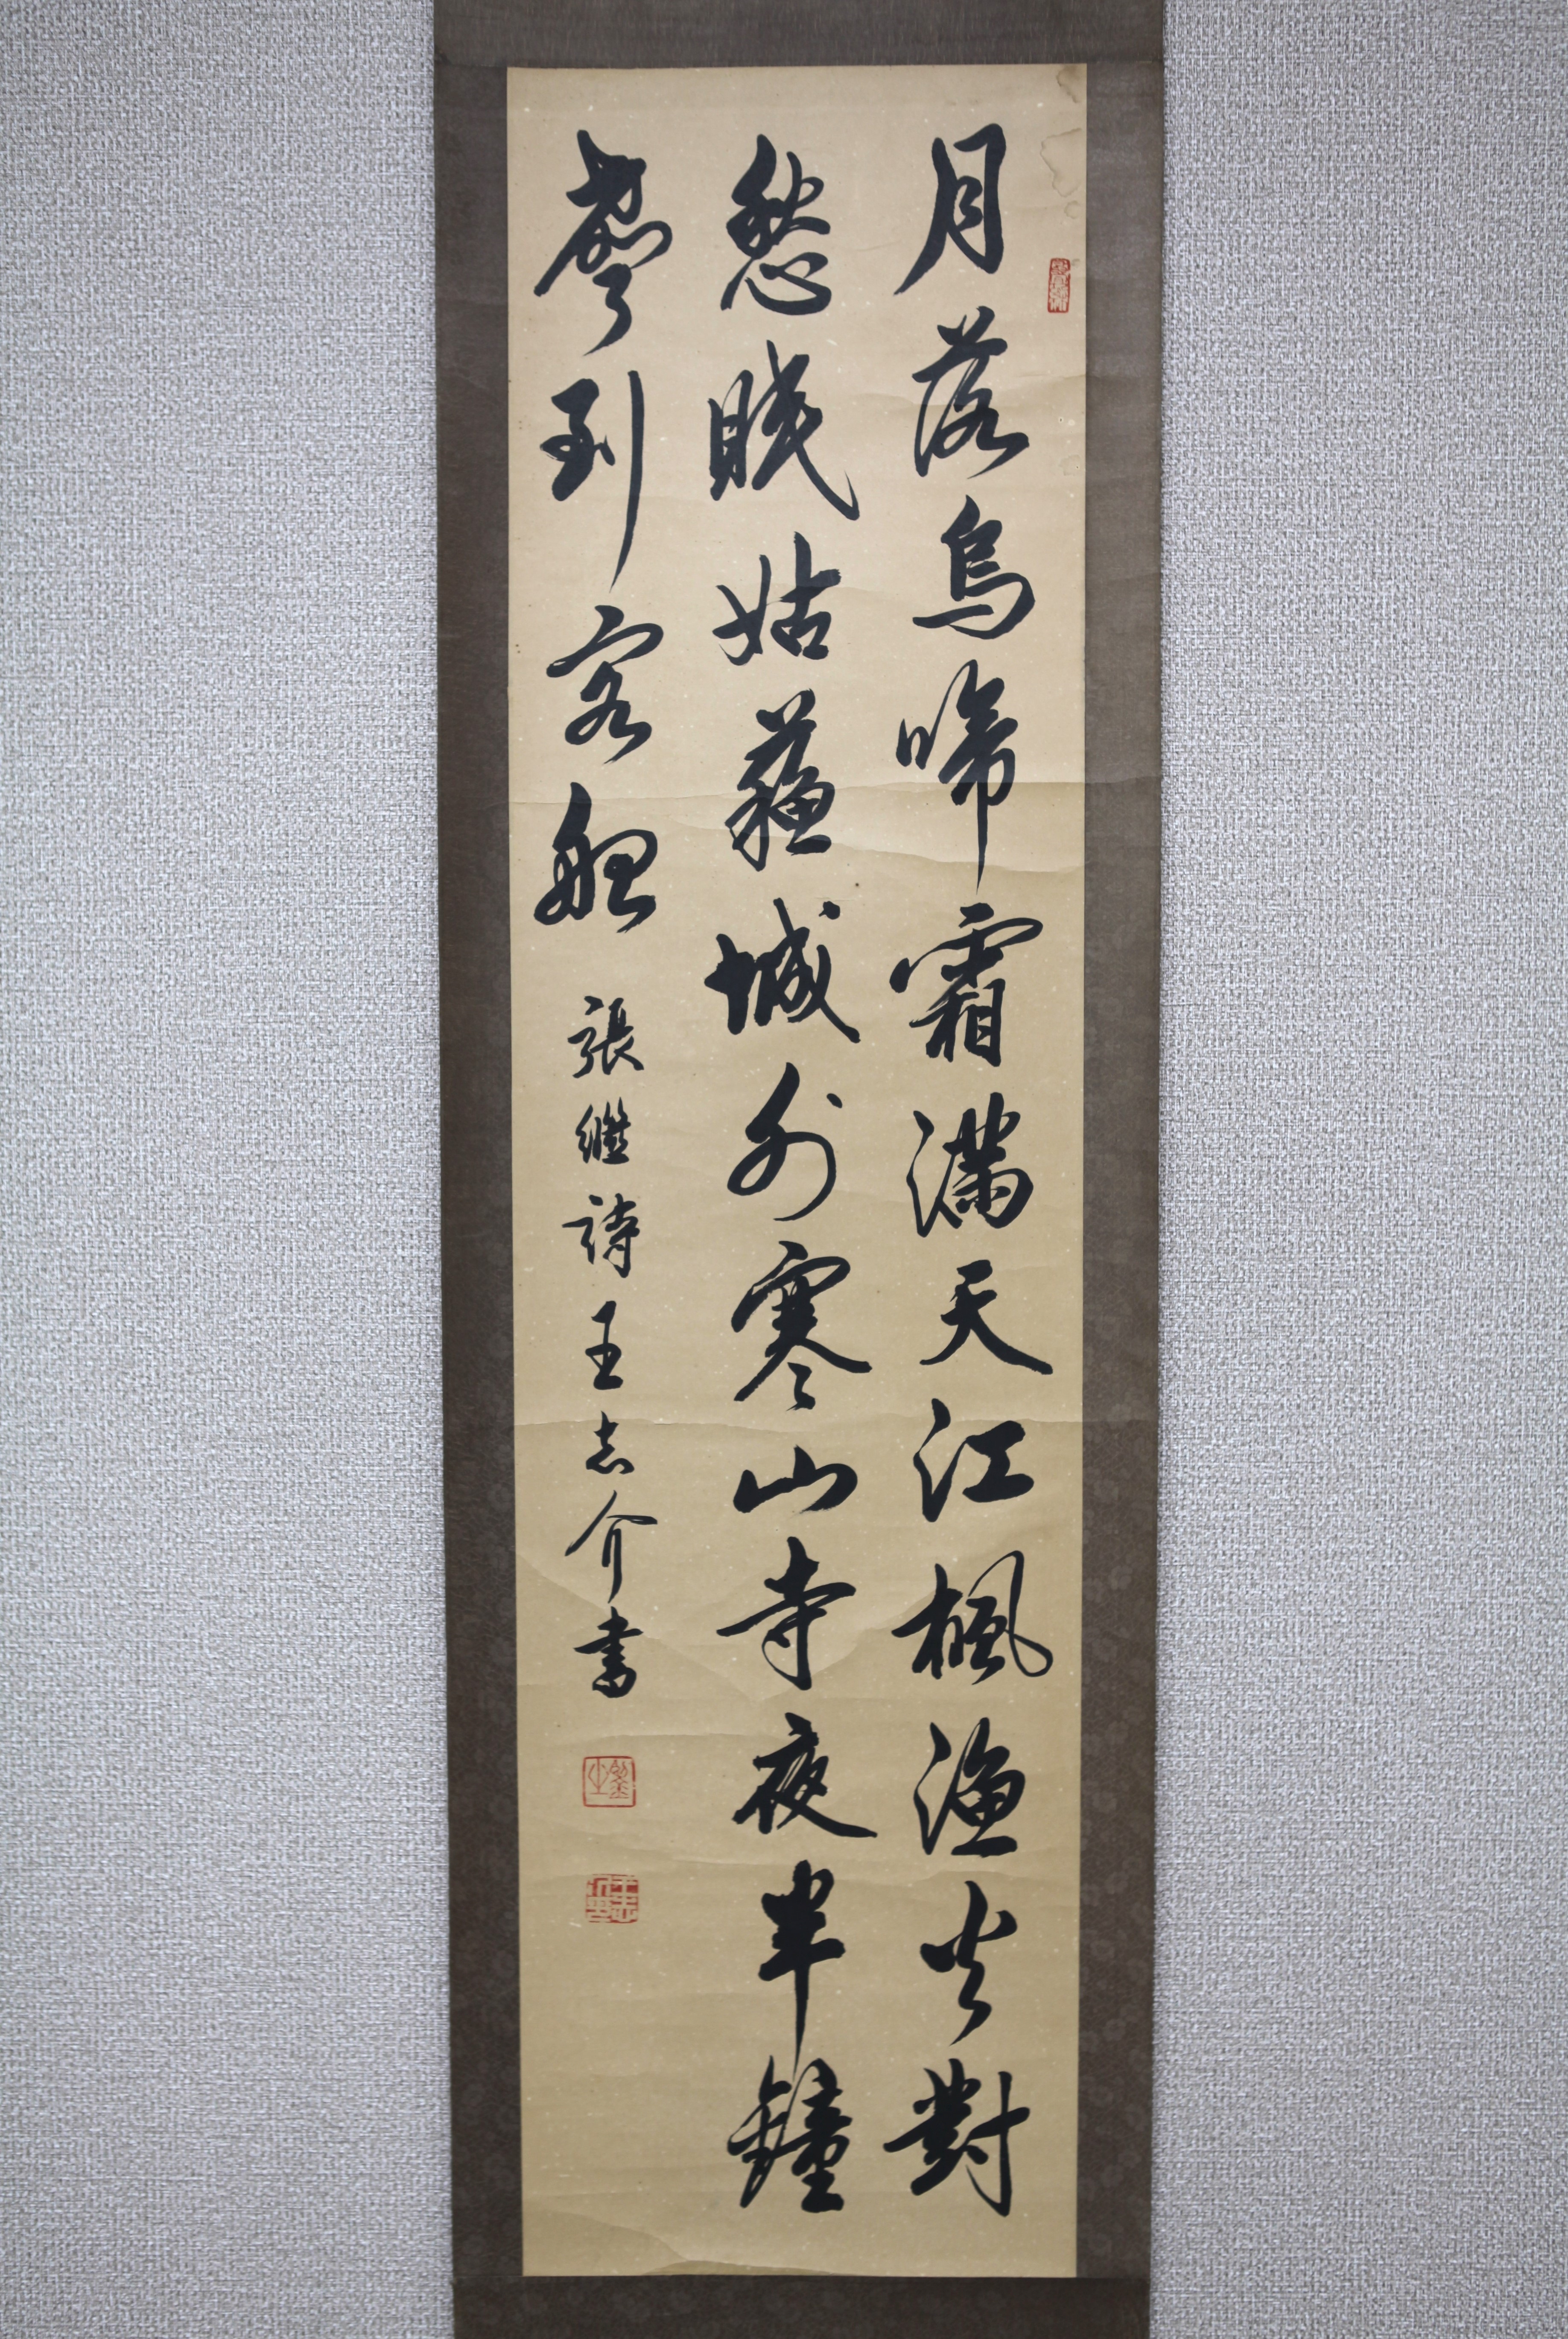 月落烏啼霜滿天江楓漁火對
愁眠姑蘇城外寒山寺夜半鐘
聲到客船
張繼詩王志介書